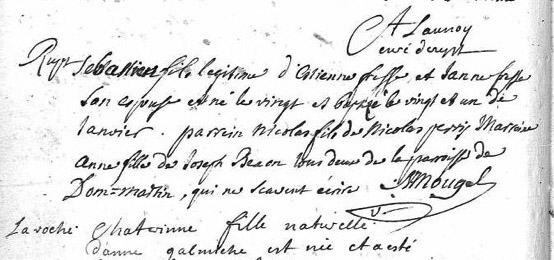 A Launoy
curé de rupt
Rupt Sebastien fils legitime d'Estienne fresse, et Janne fresse
son espouse est né le vingt et baptizé le vingt et un de
Janvier. parrein Nicolas fils de Nicolas perry Marreine
Anne fille de Joseph Beaon tous deux de la parroisse de
Dom-martin, qui ne scavent écrire Mougel
La roche Chaterinne fille naturelle
d'anne galmiche est née et a esté